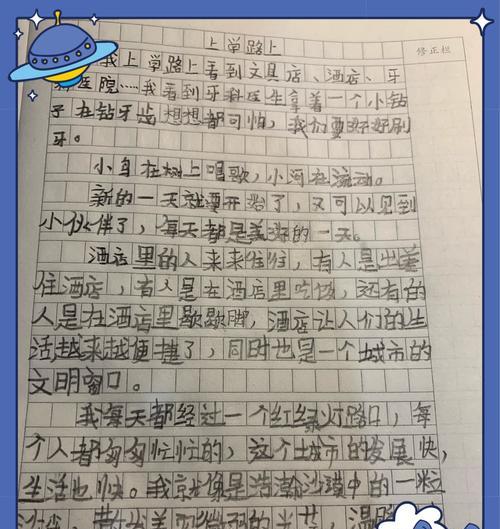 上学路上
修正栏
我上学路上看到文具店、酒店、牙
科医院……我看到牙科医生拿着一个小钻
子在钻牙齿想想都可怕,我们要好好刷
牙。
小鸟在树上唱歌,小河在流动。
新的一天就要开始了,又可以见到
小伙伴了,每天都是美好的一天。
酒店里的人来来往往,有人是出差
住酒店,有人是在酒店里吃饭,还有的
人是在酒店里歇歇脚,酒店让人们的生
活越来越便捷了,同时也是一个城市的
文明窗口。
我每天都经过一个红绿灯路口,每
个人都匆匆忙忙的,这个城市的发展快,
生活也快。我就像是浩瀚沙漠中的一粒